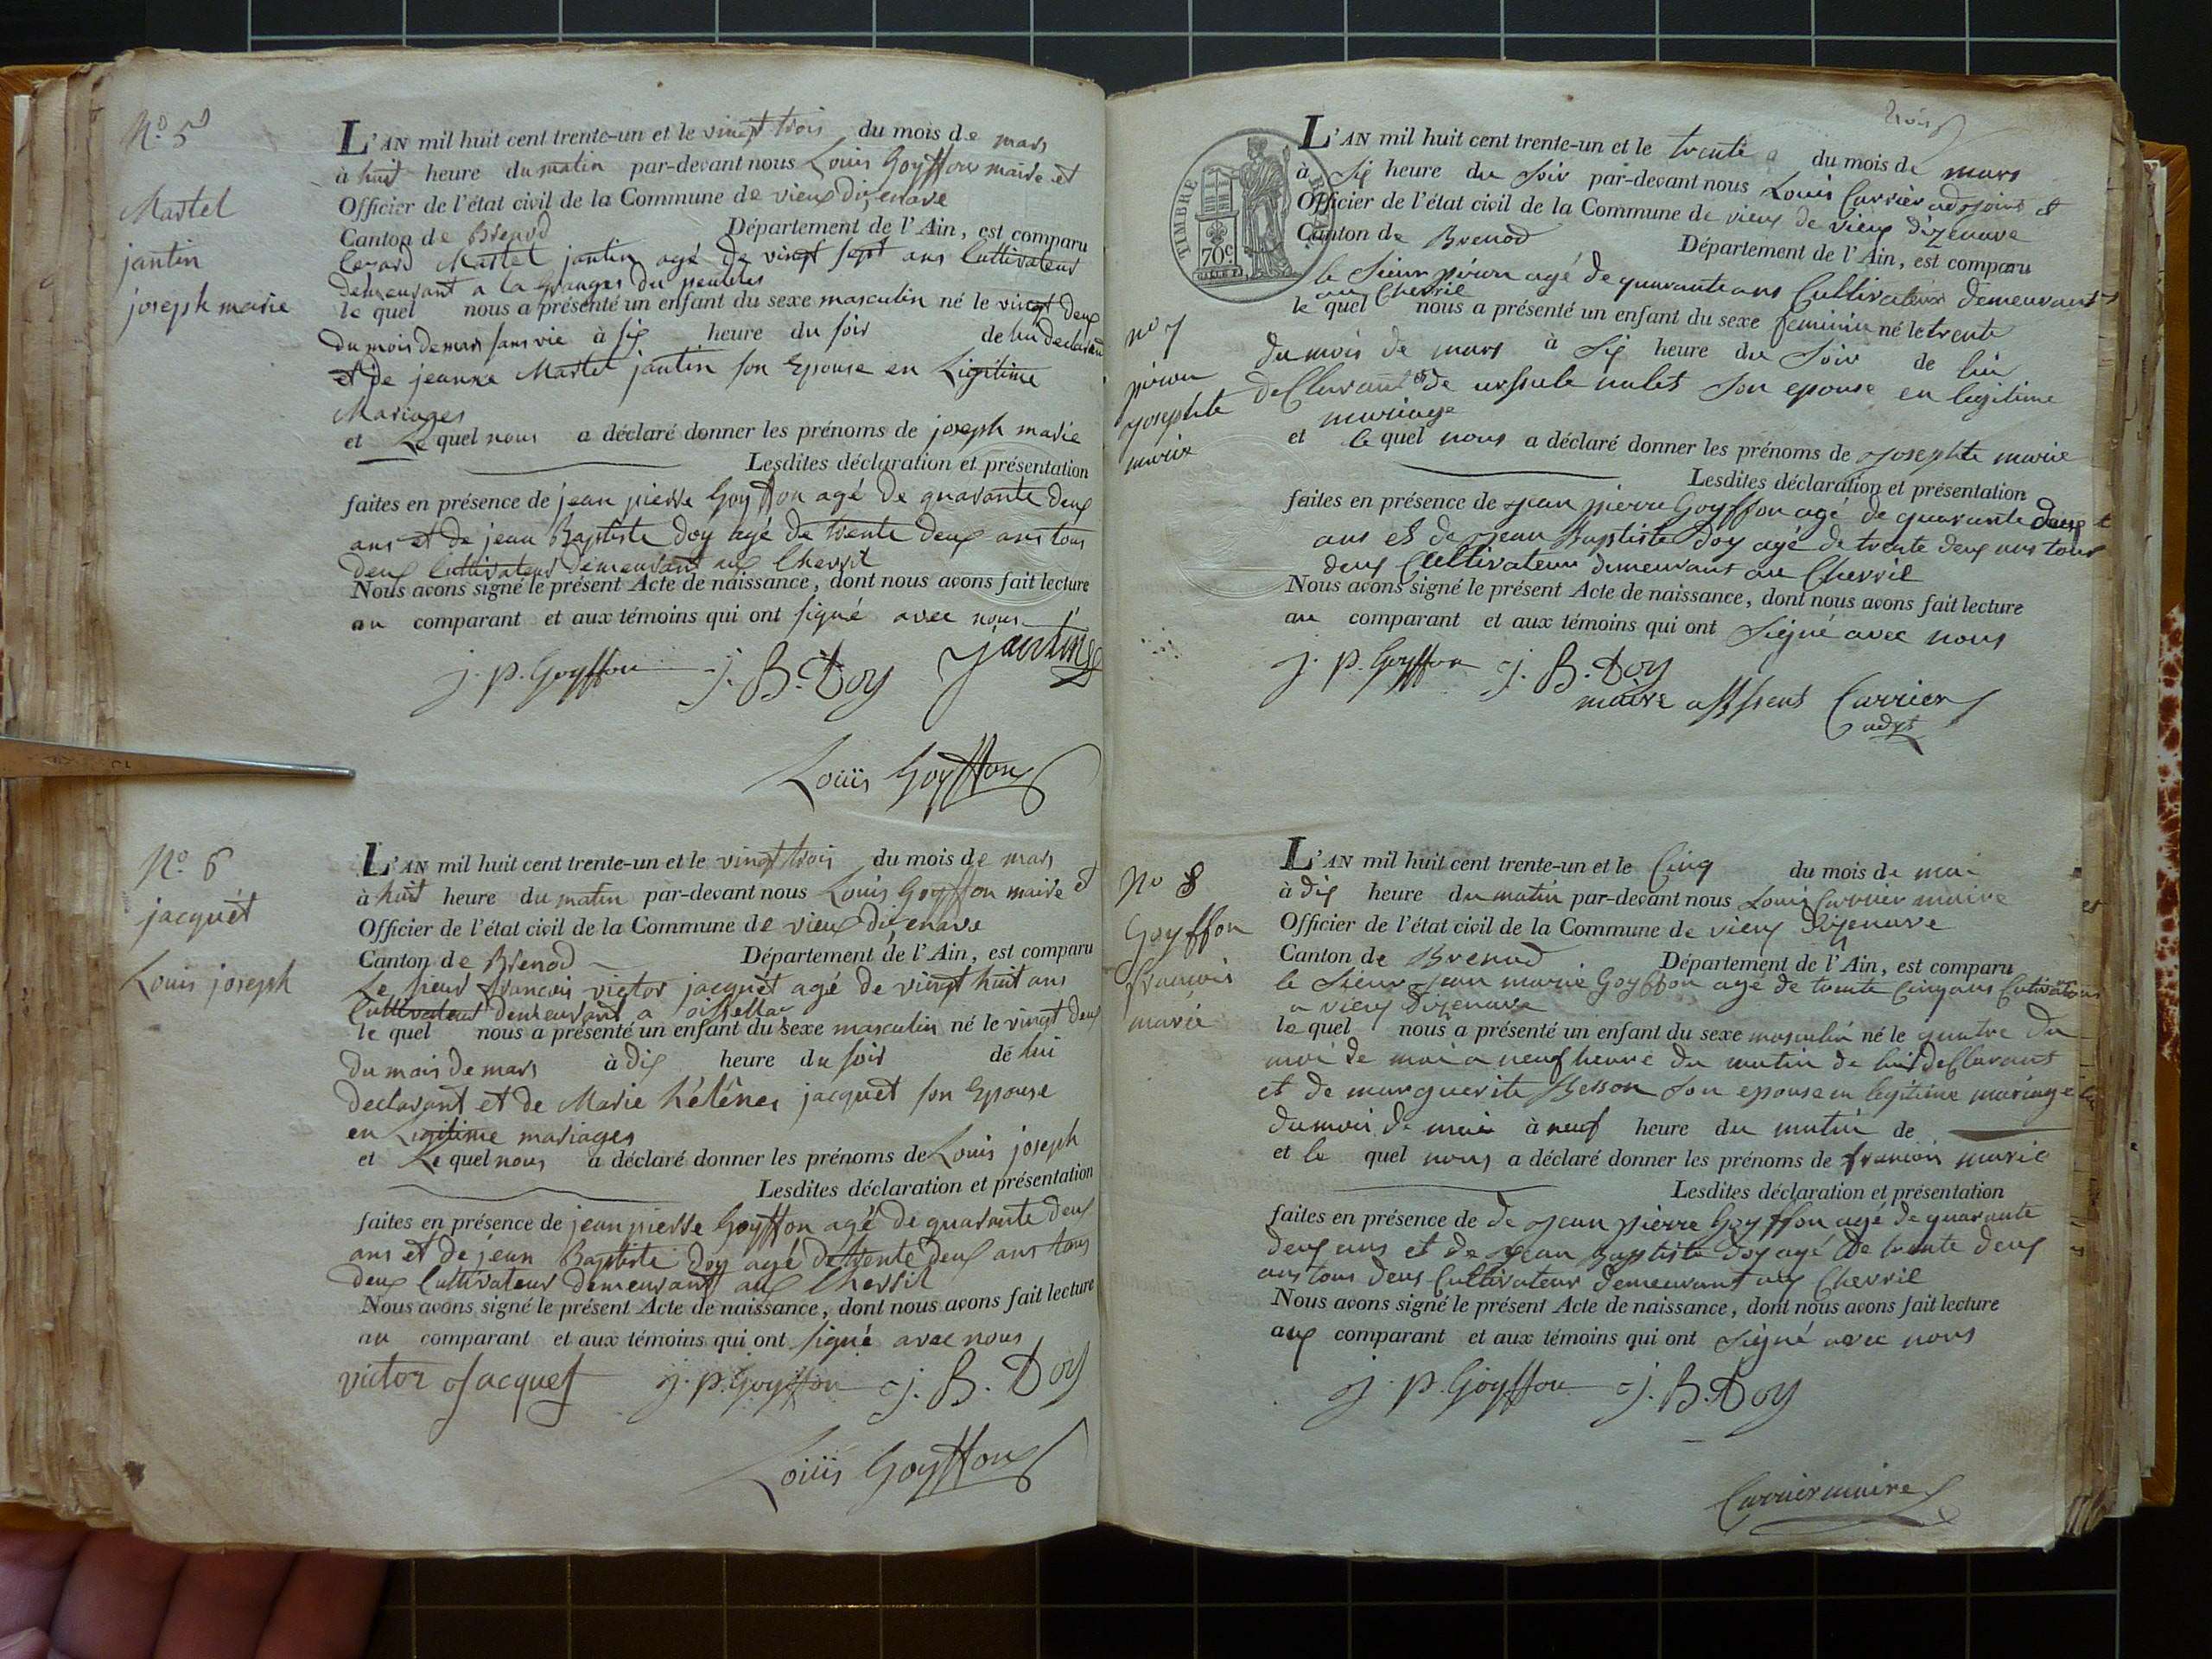 N.o 5
Martel
jantin
joseph marie
L'AN mil huit cent trente-un et le vingt trois du mois de mars
à huit heure du matin par-devant nous Louis Goyffon maire et
Officier de l'état civil de la Commune de vieux dizenave
Canton de Brenod Département de l'Ain, est comparu
Martel jantin agé de vingt sept ans Cultivateur
demeurant a la Granges du
le quel nous a présenté un enfant du sexe masculin né le vingt deux
du mois de mars sans vie à six heure du soir de lui declarant
et de jeanne Martel jantin son Epouse en Ligitime
Mariages
et Le quel nous a déclaré donner les prénoms de joseph marie
Lesdites déclaration et présentation
faites en présence de jean pierre Goyffon agé de quarante deux
ans et de jean Baptiste Doy agé de trente deux ans tous
deux Cultivateur demeurant aux Chevril
Nous avons signé le présent Acte de naissance, dont nous avons fait lecture
au comparant et aux témoins qui ont signé avec nous
j. p. Goyffon j. B. Doy jantin
Louis Goyffon
N.o 6
jacquet
Louis joseph
L'AN mil huit cent trente-un et le vingt trois du mois de mars
à huit heure du matin par-devant nous Louis Goyffon maire et
Officier de l'état civil de la Commune de vieux dizenave
Canton de Brenod Département de l'Ain, est comparu
Le sieur francois victor jacquet agé de vingt huit ans
Cultivateur demeurant a
le quel nous a présenté un enfant du sexe masculin né le vingt deux
du mois de mars à dix heure du soir de lui
declarant et de Marie hélénes jacquet son Epouse
en Ligitime mariages
et Le quel nous a déclaré donner les prénoms de Louis joseph
Lesdites déclaration et présentation
faites en présence de jean pierre Goyffon agé de quarante deux
ans et de jean Baptiste Doy agé de trente deux ans tous
deux Cultivateur demeurant aux Chevril
Nous avons signé le présent Acte de naissance, dont nous avons fait lecture
au comparant et aux témoins qui ont signé avec nous
victor Jacquet j. p. Goyffon j. B. Doy
Louis Goyffon
trois
TIMBRE ROYAL
70c
no 7
piron
josephte
marie
L'AN mil huit cent trente-un et le trente du mois de mars
à Six heure du Soir par-devant nous Louis Carrier adjoint et
Officier de l'état civil de la Commune de vieux de vieux dizenave
Canton de Brenod Département de l'Ain, est comparu
le Sieur piron agé de quarante ans Cultivateur demeurant
au Chevril
le quel nous a présenté un enfant du sexe feminin né le trente
du mois de mars à Six heure du Soir de lui
declarant et de ursule nulet son epouse en legitime
mariage
et le quel nous a déclaré donner les prénoms de josephte marie
Lesdites déclaration et présentation
faites en présence de jean pierre Goyffon agé de quarante deux
ans et de jean baptiste Doy agé de trente deux ans tous
deux Cultivateur demeurant au Chevril
Nous avons signé le présent Acte de naissance, dont nous avons fait lecture
au comparant et aux témoins qui ont Signé avec nous
j. p. Goyffon j. B. Doy
maire Carrier
adjt
no 8
Goyffon
francois
marie
L'AN mil huit cent trente-un et le Cinq du mois de mai
à dix heure du matin par-devant nous Louis Carrier maire et
Officier de l'état civil de la Commune de vieux Dizenave
Canton de Brenod Département de l'Ain, est comparu
le Sieur jean marie Goyffon agé de trente Cinq ans Cultivateur
a vieux Dizenave
le quel nous a présenté un enfant du sexe masculin né le quatre du
moi de mai a neuf heure du matin de lui declarant
et de marguerite Besson son epouse en legitime mariage
du mois de mai à neuf heure du matin de
et le quel nous a déclaré donner les prénoms de francois marie
Lesdites déclaration et présentation
faites en présence de de jean pierre Goyffon agé de quarante
deux ans et de jean Baptiste Doy agé de trente deux
ans tous deux Cultivateur demeurant aux Chevril
Nous avons signé le présent Acte de naissance, dont nous avons fait lecture
aux comparant et aux témoins qui ont Signé avec nous
j. p. Goyffon j. B. Doy
Carrier maire